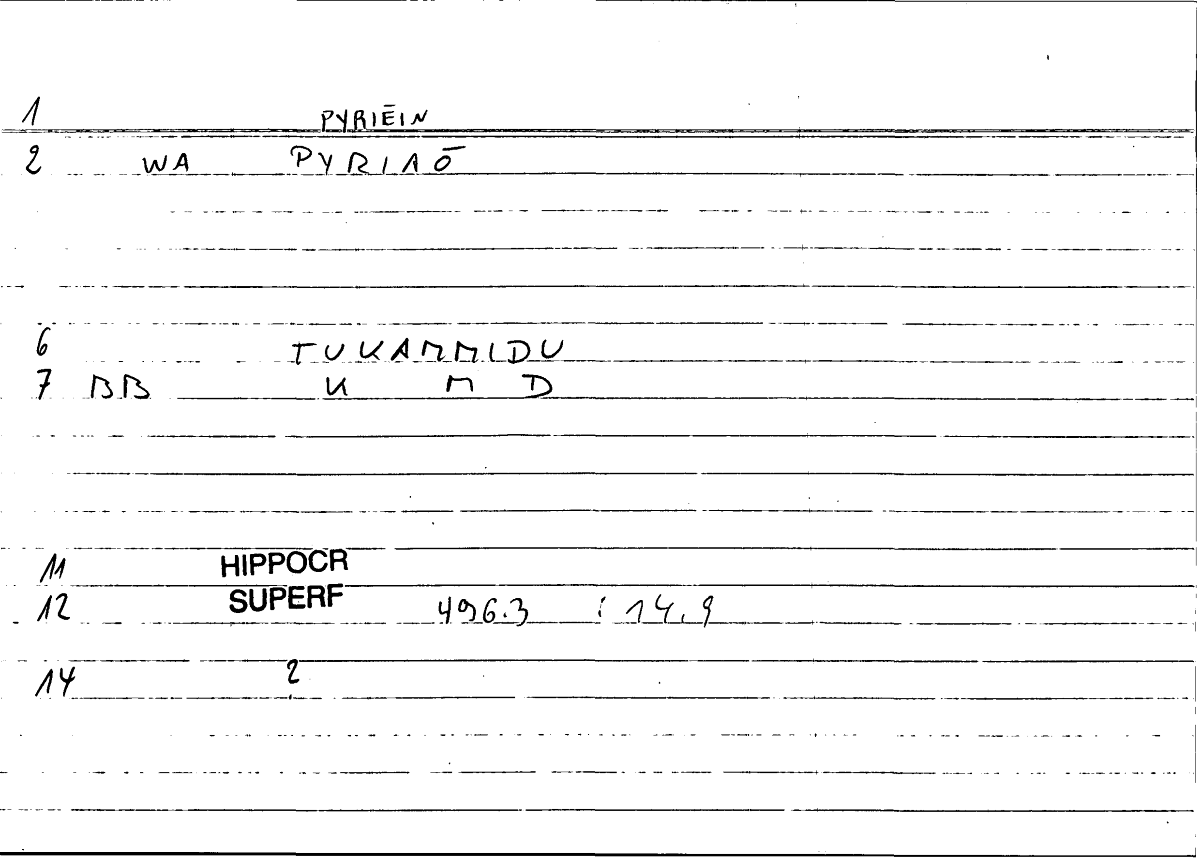 1 PYRIĒIN
2 WA PYRIAŌ
6 TUKAMMIDU
7 BB K M D
11 HIPPOCR
12 SUPERF 496.3 : 14.9
14 2